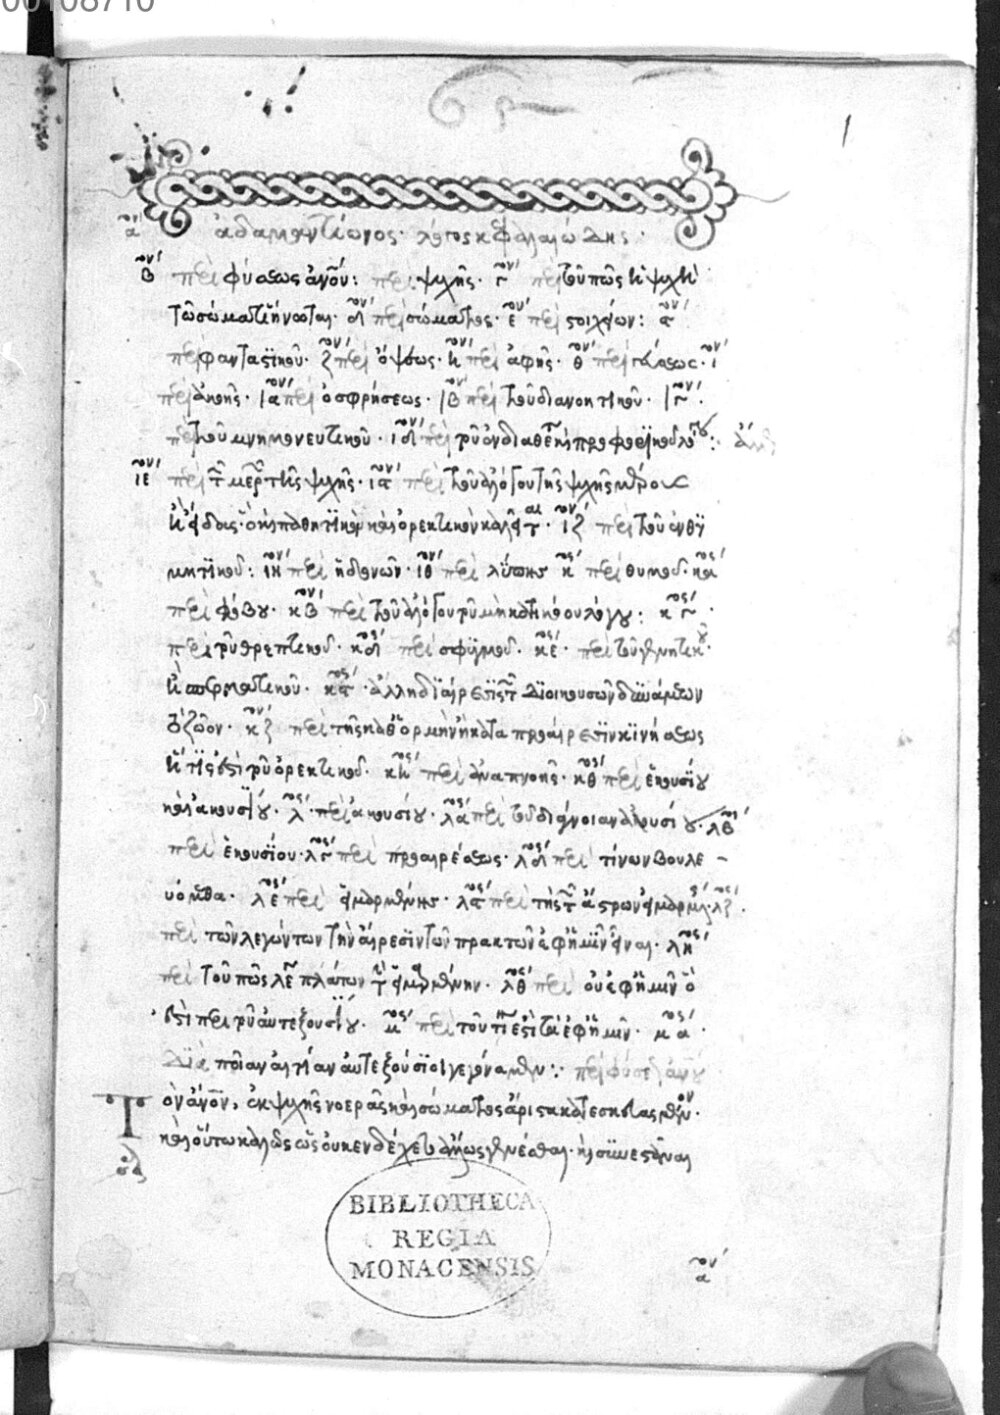 00108710
1
ἀδαμαντίωνος λόγος κεφαλαιώδης
β περὶ φύσεως ἀνου: περὶ ψυχῆς· γ περὶ τοῦ πῶς ἡ ψυχὴ
τῷ σώματι ἥνωται· δ περὶ σώματος· ε περὶ στοιχείων: ϛ
περὶ φανταστικοῦ· ζ περὶ ὄψεως· η περὶ ἁφῆς· θ περὶ γεύσεως· ι
περὶ ἀκοῆς· ια περὶ ὀσφρήσεως· ιβ περὶ τοῦ διανοητικοῦ· ιγ
περὶ τοῦ μνημονευτικοῦ· ιδ περὶ τοῦ ἐνδιαθέτου προφορικοῦ λόγου:
ιε περὶ τ μερ τῆς ψυχῆς· ιϛ περὶ τοῦ ἀλόγου τῆς ψυχῆς μέρους
παθητικὸν καὶ ὀρεκτικὸν καλεῖται· ιζ περὶ τοῦ ἐπιθυ
μητικοῦ: ιη περὶ ἡδονῶν· ιθ περὶ λύπης κ περὶ θυμοῦ· κα
περὶ φόβου· κβ περὶ τοῦ ἀλόγου τοῦ μὴ κατηκόου λόγου: κγ
περὶ τοῦ θρεπτικοῦ· κδ περὶ σφυγμοῦ· κε· περὶ τοῦ γεννητικοῦ
ἢ σπερματικοῦ· κϛ· ἄλλη διαίρεσις τ διοικουσῶν δυνάμεων
τὸ ζῶον· κζ περὶ τῆς καθ ὁρμὴν ἢ κατὰ προαίρεσιν κινήσεως
ἥτις ἐστὶ τοῦ ὀρεκτικοῦ· κη περὶ ἀναπνοῆς· κθ περὶ ἑκουσίου
καὶ ἀκουσίου· λ· περὶ ἀκουσίου· λα περὶ τοῦ δι' ἄγνοιαν ἀκουσίου· λβ
περὶ ἑκουσίου· λγ περὶ προαιρέσεως· λδ περὶ τίνων βουλε
υόμεθα· λε περὶ εἱμαρμένης· λϛ περὶ τῆς τ ἄστρων εἱμαρμέ· λζ·
περὶ τῶν λεγόντων τὴν αἵρεσιν τῶν πρακτῶν ἐφ ἡμῖν εἶναι· λη
περὶ τοῦ πῶς λέ πλάτων τ εἱμαρμένην· λθ περὶ τοῦ ἐφ ἡμῖν ὅ
ἐστι περὶ τοῦ αὐτεξουσίου· μ περὶ τοῦ τίνα ἐστὶ τὰ ἐφ ἡμῖν· μα·
διὰ ποίαν αἰτίαν αὐτεξούσιοι γεγόναμεν: περὶ φύσε ἀνου
Τὸν ἄνον, ἐκ ψυχῆς νοερᾶς καὶ σώματος ἄριστα κατεσκευασμένον·
καὶ οὕτω καλῶς ὡς οὐκ ἐνδέχεται ἄλλως γενέσθαι· ἢ συνεστάναι
BIBLIOTHECA
REGIA
MONACENSIS
α